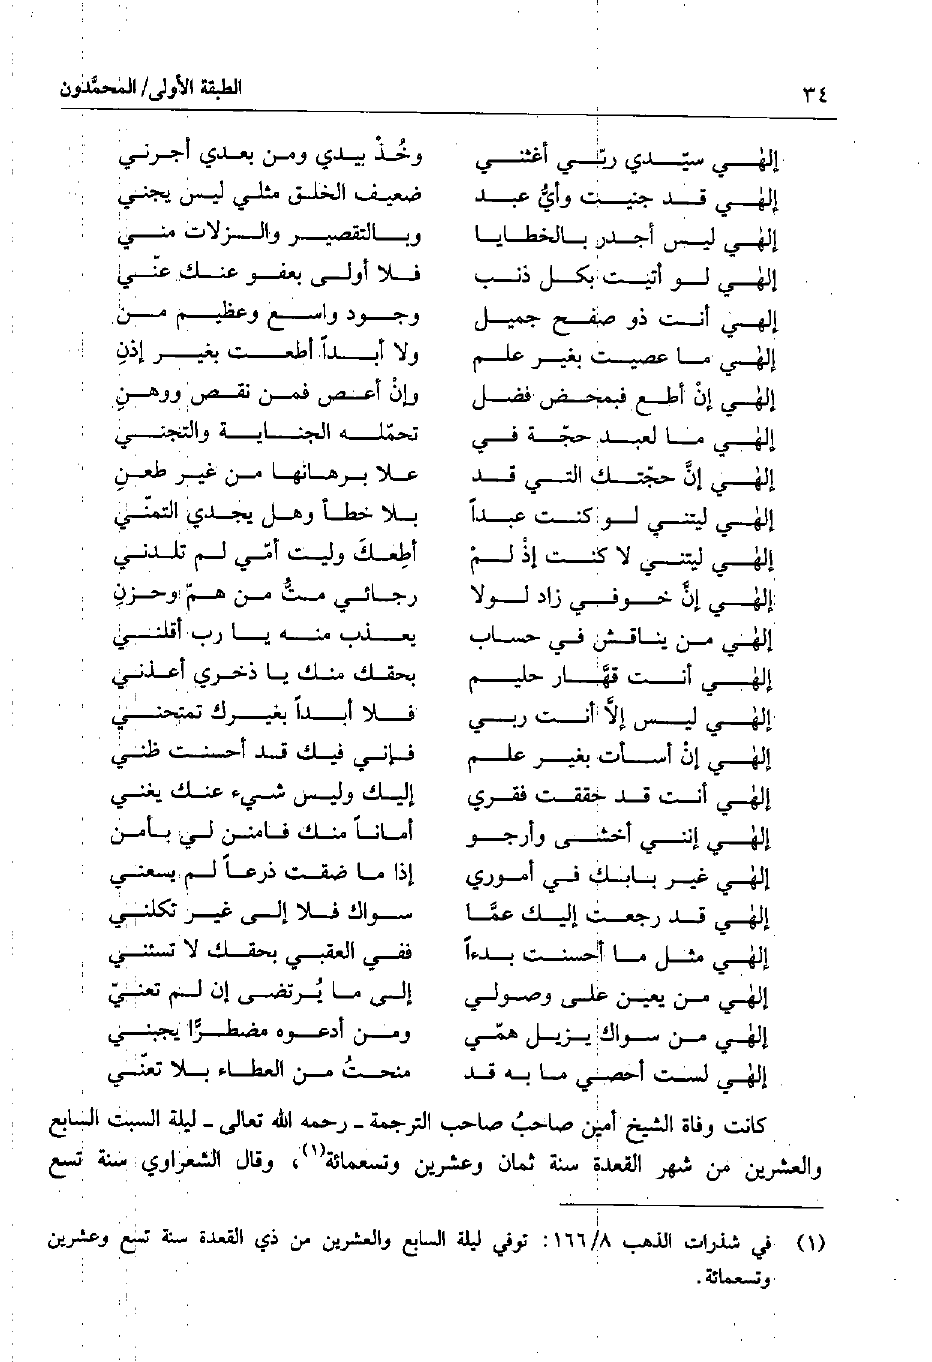 ٣٤ الطبقة الأولى/ المحمَّدون
إلهي سيّدي ربّي أغثني وخُذْ بيدي ومن بعدي أجرني
إلهي قد جنيت وأيُّ عبد ضعيف الخلق مثلي ليس يجني
إلهي ليس أجدر بالخطايا وبالتقصير والزلات مني
إلهي لو أتيت بكل ذنب فلا أولى بعفو عنك عنّي
إلهي أنت ذو صفح جميل وجود واسع وعظيم من
إلهي ما عصيت بغير علم ولا أبداً أطعت بغير إذنِ
إلهي إنْ أطع فبمحض فضل وإنْ أعص فمن نقص ووهنِ
إلهي ما لعبد حجّة في تحمّله الجناية والتجني
إلهي إنَّ حجّتك التي قد علا برهانها من غير طعن
إلهي ليتني لو كنت عبداً بلا خطأ وهل يجدي التمنّي
إلهي ليتني لا كنت إذْ لمْ أطعكَ وليت أمّي لم تلدني
إلهي إنَّ خوفي زاد لولا رجائي متُّ من همّ وحزنِ
إلهي من يناقش في حساب يعذب منه يا رب أقلني
إلهي أنت قهَّار حليم بحقك منك يا ذخري أعذني
إلهي ليس إلاَّ أنت ربي فلا أبداً بغيرك تمتحني
إلهي إنْ أسأت بغير علم فإني فيك قد أحسنت ظني
إلهي أنت قد حققت فقري إليك وليس شيء عنك يغني
إلهي إنني أخشى وأرجو أماناً منك فامنن لي بأمن
إلهي غير بابك في أموري إذا ما ضقت ذرعاً لم يسعني
إلهي قد رجعت إليك عمَّا سواك فلا إلى غير تكلني
إلهي مثل ما أحسنت بدءاً ففي العقبي بحقك لا تسئني
إلهي من يعين على وصولي إلى ما يُرتضى إن لم تعنيّ
إلهي من سواك يزيل همّي ومن أدعوه مضطرًّا يجبني
إلهي لست أحصي ما به قد منحتُ من العطاء بلا تعنّي
كانت وفاة الشيخ أمين صاحبُ صاحب الترجمة ـ رحمه الله تعالى ـ ليلة السبت السابع
والعشرين من شهر القعدة سنة ثمان وعشرين وتسعمائة(١)، وقال الشعراوي سنة تسع
(١) في شذرات الذهب ١٦٦/٨: توفي ليلة السابع والعشرين من ذي القعدة سنة تسع وعشرين
وتسعمائة.